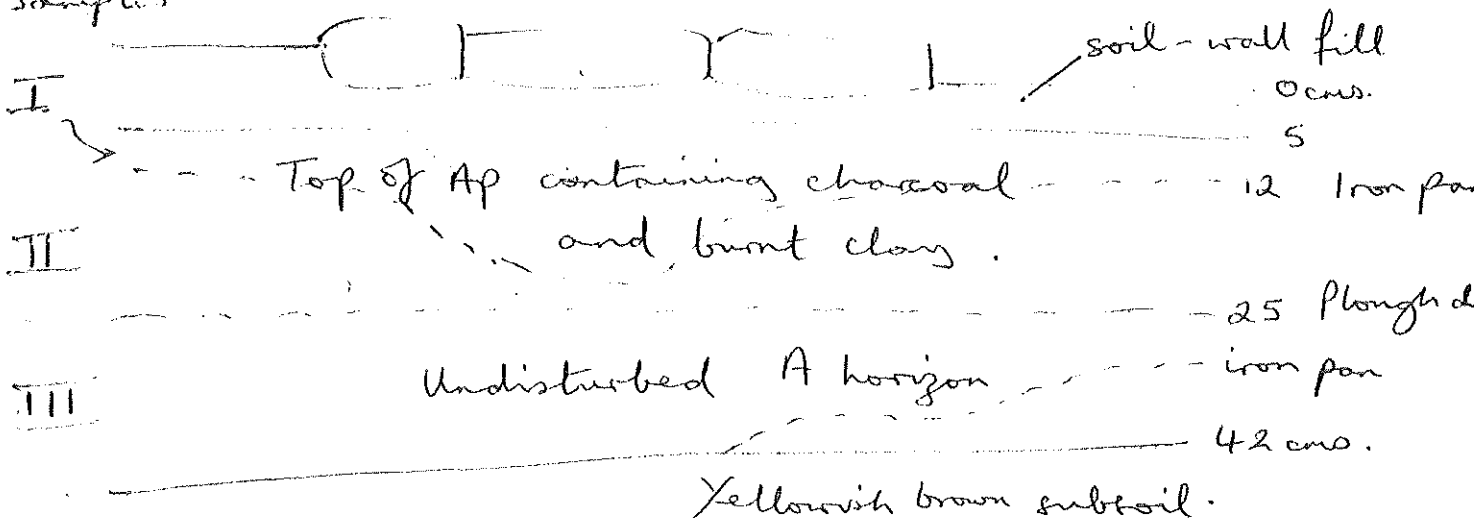 samples
soil-wall fill
I 0 cms.
5
Top of Ap containing charcoal 12 Iron pan
II and burnt clay.
25 Plough d
III Undisturbed A horizon iron pan
42 cms.
Yellowish brown subsoil.